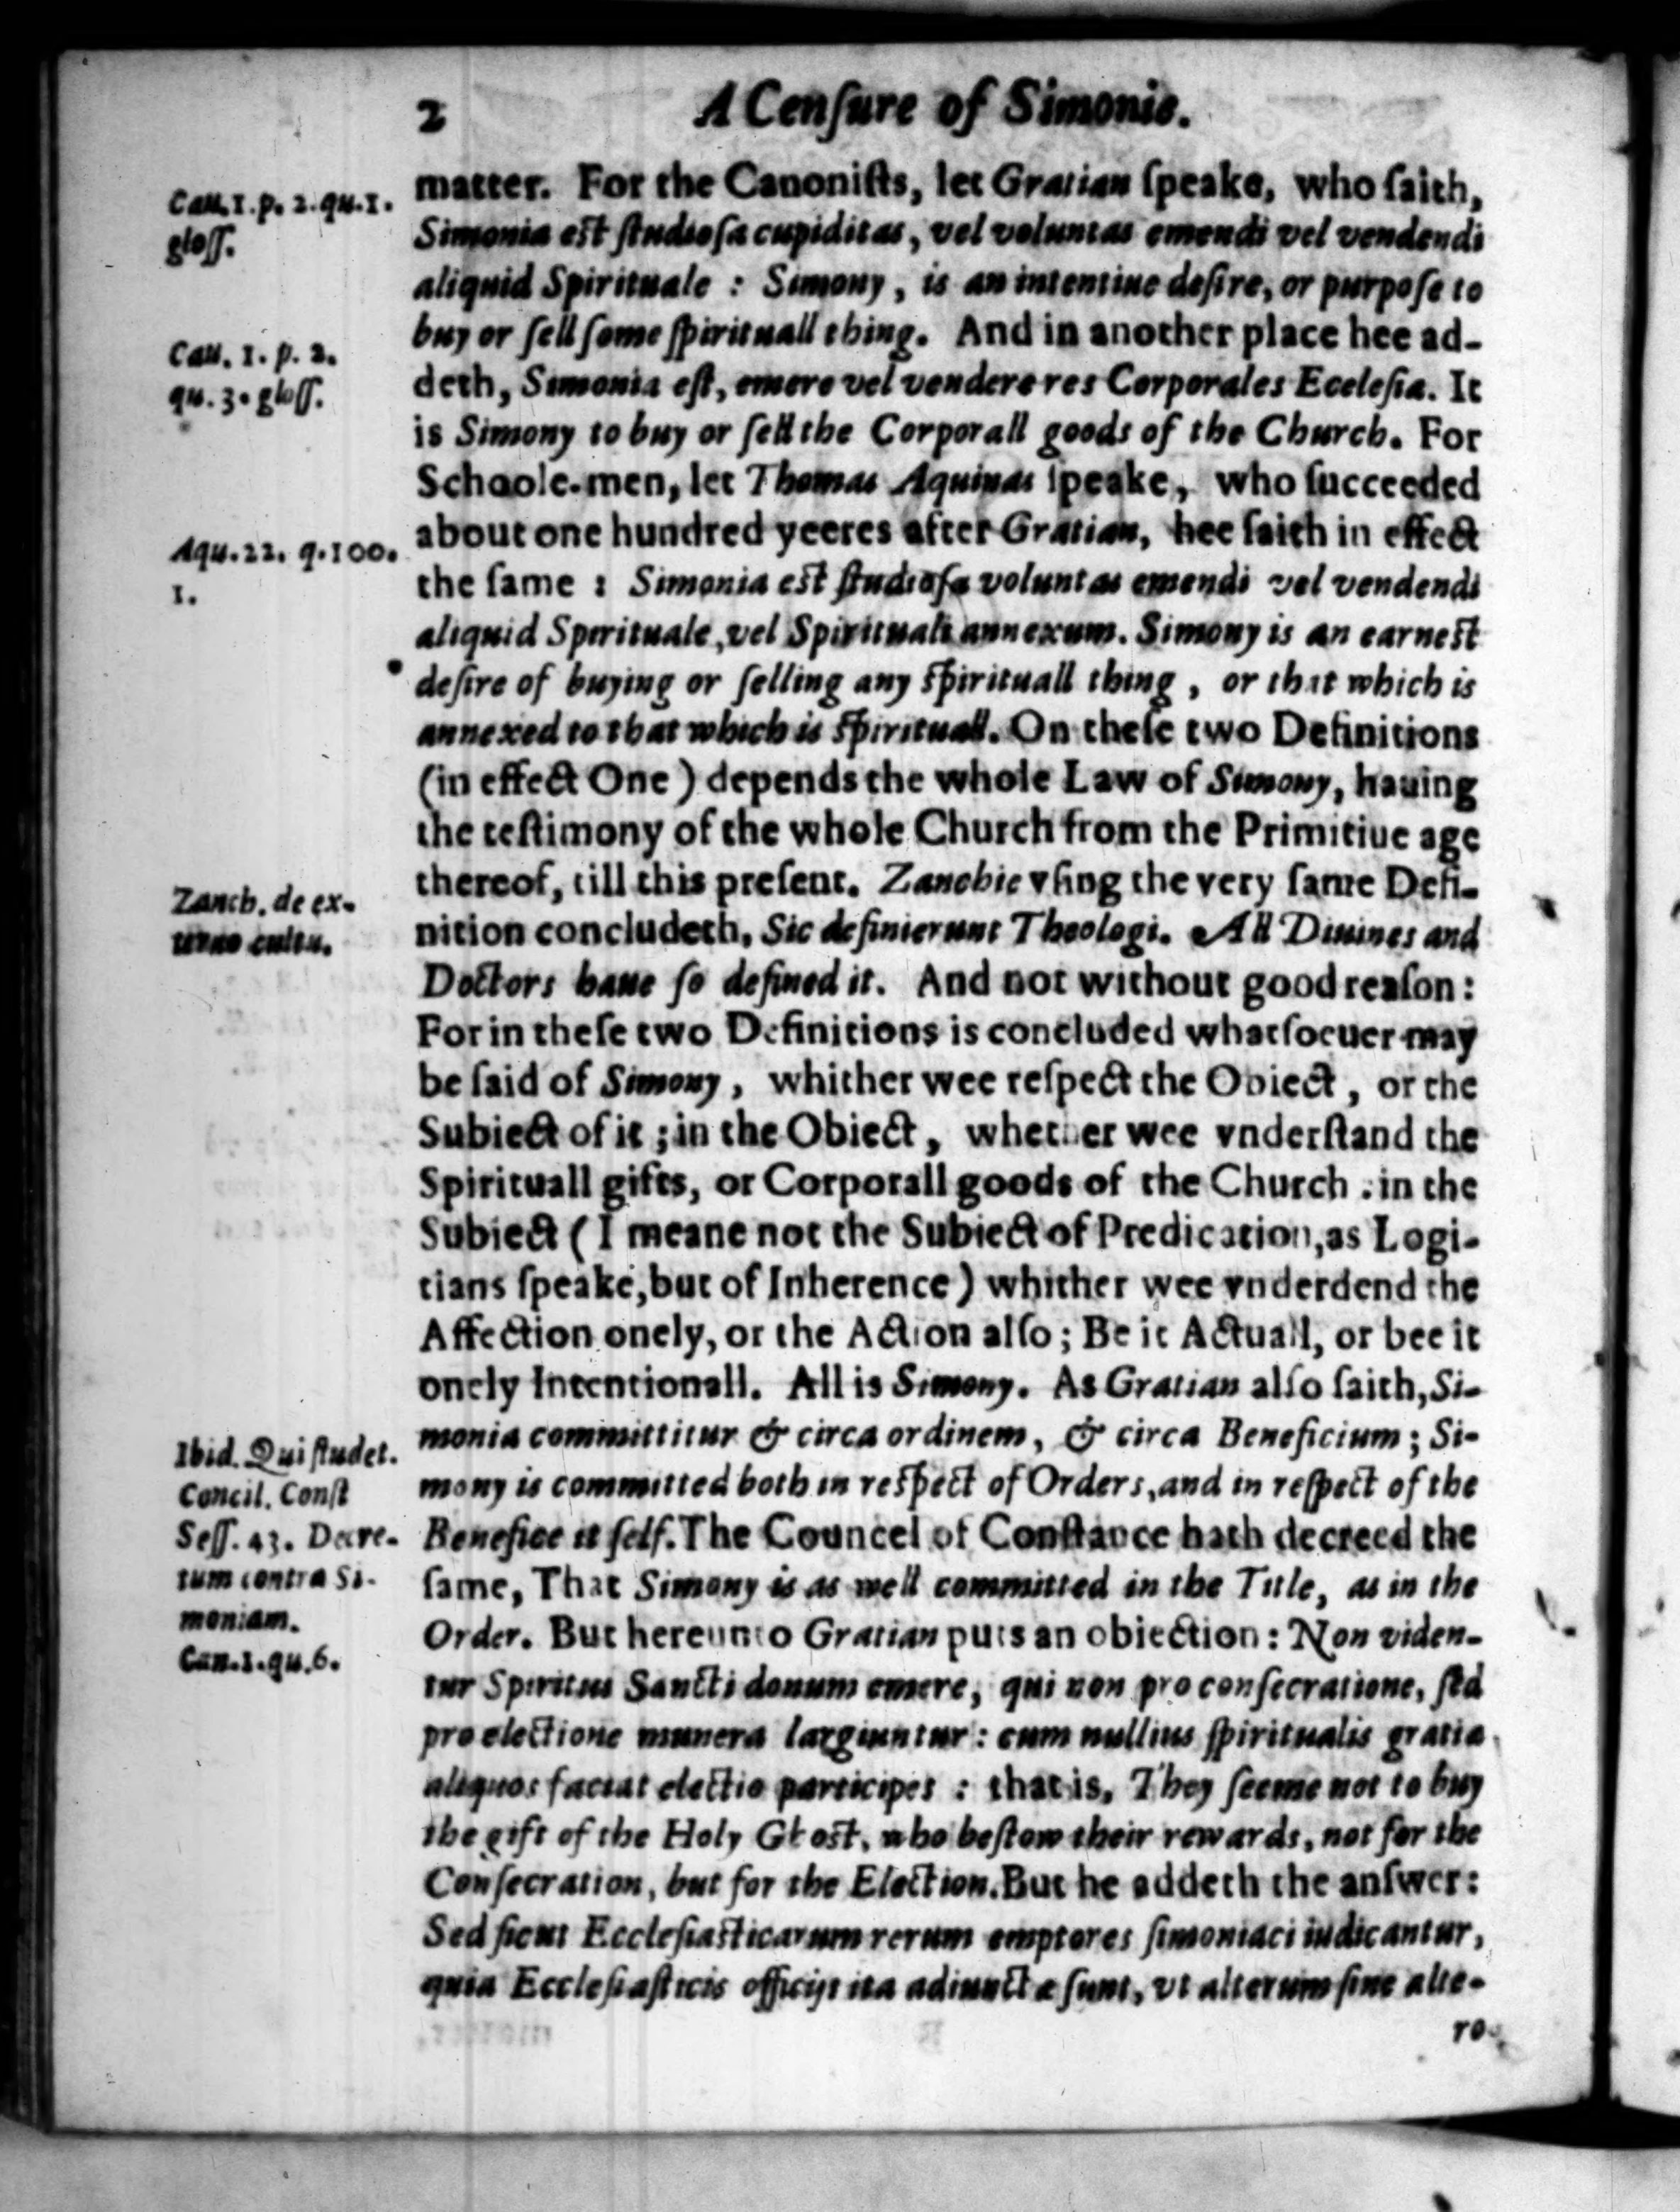 2 A Cenſure of Simonie.
matter. For the Canoniſts, let Gratian ſpeake, who ſaith,
Cau. 1. p. 2. qu. 1.
gloſſ.
Simonia eſt ſtudioſa cupiditas, vel voluntas emendi vel vendendi
aliquid Spirituale : Simony, is an intentiue deſire, or purpoſe to
buy or ſell ſome ſpirituall thing. And in another place hee ad-
Cau. 1. p. 2.
qu. 3. gloſſ.
deth, Simonia eſt, emere vel vendere res Corporales Eccleſia. It
is Simony to buy or ſell the Corporall goods of the Church. For
Schoole-men, let Thomas Aquinas ſpeake, who ſucceeded
about one hundred yeeres after Gratian, hee ſaith in effect
Aqu. 22. q. 100.
1.
the ſame : Simonia eſt ſtudioſa voluntas emendi vel vendendi
aliquid Spirituale, vel Spirituali annexum. Simony is an earneſt
deſire of buying or ſelling any ſpirituall thing, or that which is
annexed to that which is ſpirituall. On theſe two Definitions
(in effect One) depends the whole Law of Simony, hauing
the teſtimony of the whole Church from the Primitiue age
thereof, till this preſent. Zanchie vſing the very ſame Defi-
Zanch. de ex-
terno cultu.
nition concludeth, Sic definierunt Theologi. All Diuines and
Doctors haue ſo defined it. And not without good reaſon:
For in theſe two Definitions is concluded whatſoeuer may
be ſaid of Simony, whither wee reſpect the Obiect, or the
Subiect of it ; in the Obiect, whether wee vnderſtand the
Spirituall gifts, or Corporall goods of the Church : in the
Subiect (I meane not the Subiect of Predication, as Logi-
tians ſpeake, but of Inherence) whither wee vnderdend the
Affection onely, or the Action alſo; Be it Actuall, or bee it
onely Intentionall. All is Simony. As Gratian alſo ſaith, Si-
monia committitur & circa ordinem, & circa Beneficium; Si-
Ibid. Qui ſtudet.
Concil. Conſt
Seſſ. 43. Decre-
tum contra Si-
moniam.
Can. 1. qu. 6.
mony is committed both in reſpect of Orders, and in reſpect of the
Benefice it ſelf. The Councel of Conſtance hath decreed the
ſame, That Simony is as well committed in the Title, as in the
Order. But hereunto Gratian puts an obiection: Non viden-
tur Spiritus Sancti donum emere, qui non pro conſecratione, ſed
pro electione munera largiuntur: cum nullius ſpiritualis gratia
aliquos faciat electio participes : that is, They ſeeme not to buy
the gift of the Holy Ghoſt, who beſtow their rewards, not for the
Conſecration, but for the Election. But he addeth the anſwer:
Sed ſicut Eccleſiaſticarum rerum emptores ſimoniaci iudicantur,
quia Eccleſiaſticis officijs ita adiunctæ ſunt, vt alterum ſine alte-
ro